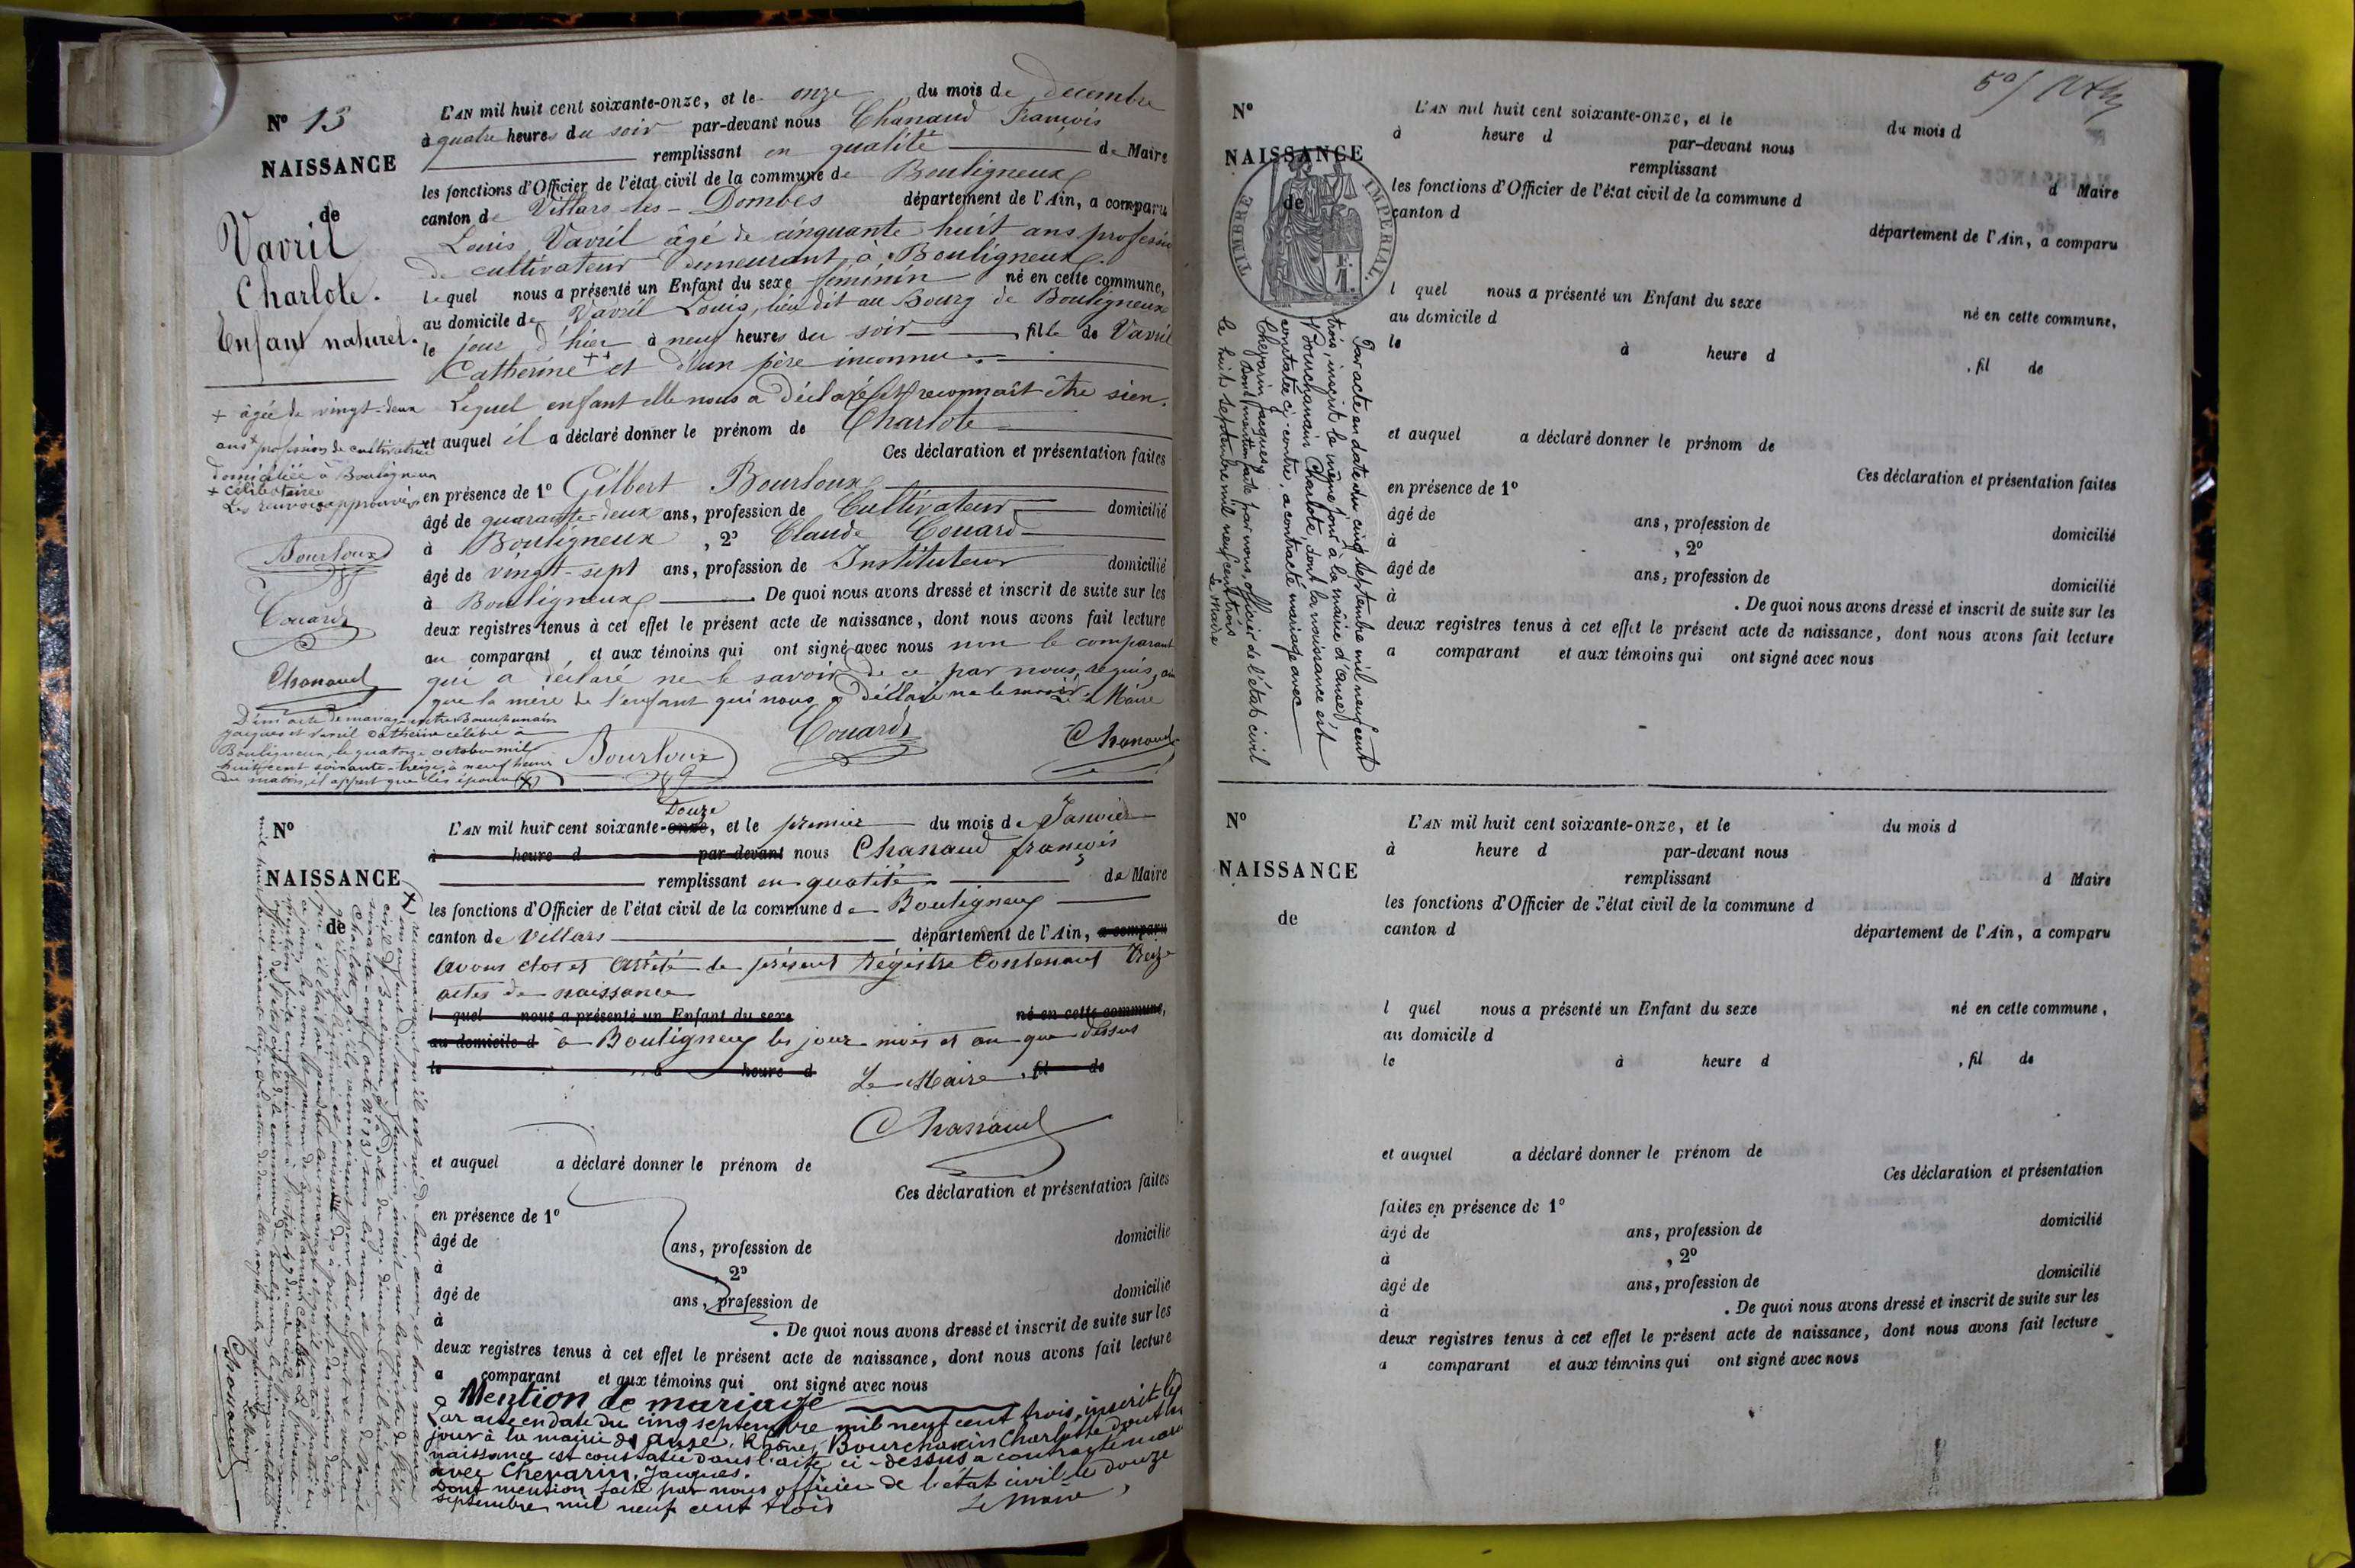 N° 13
NAISSANCE
de
Vavril
Charlote.
Enfant naturel.
L'AN mil huit cent soixante-onze, et le onze du mois de decembre
à quatre heures du soir par-devant nous Chanaud François
remplissant en qualité de Maire
les fonctions d'Officier de l'état civil de la commune de Bouligneux
canton de Villars les-Dombes département de l'Ain, a comparu
Louis Vavril âgé de cinquante huit ans profession
de cultivateur demeurant à Bouligneux.
Lequel nous a présenté un Enfant du sexe féminin né en cette commune,
au domicile de Vavril Louis, lieu dit au Bourg de Bouligneux
le jour d'hier à neuf heures du soir fille de Vavril
Catherine ++ et d'un père inconnu.
Lequel enfant elle nous a déclaré et reconnaît être sien.
et auquel il a déclaré donner le prénom de Charlote
Ces déclaration et présentation faites
en présence de 1° Gilbert Bourloux
âgé de quarante-deux ans, profession de Cultivateur domicilié
à Bouligneux, 2° Claude Couard
âgé de vingt-sept ans, profession de Instituteur domicilié
à Bouligneux. De quoi nous avons dressé et inscrit de suite sur les
deux registres tenus à cet effet le présent acte de naissance, dont nous avons fait lecture
au comparant et aux témoins qui ont signé avec nous non le comparant
qui a déclaré ne le savoir de ce par nous requis,
que la mère de l'enfant qui nous a déclaré ne le savoir Le Maire
Bourloux Couard Chanaud
+ âgée de vingt-deux
ans + profession de cultivatrice
domiciliée à Bouligneux
+ célibataire
Les renvois approuvés
Bourloux
Couard
Chanaud
D'un acte de mariage entre Bourchanin
Jacques et Vavril Catherine célébré à
Bouligneux, le quatorze octobre mil
huit cent soixante-treize, à neuf heures
du matin, il appert que les époux (X)
N°
NAISSANCE
de
L'AN mil huit cent soixante-onze Douze, et le premier du mois de Janvier
à heure d par-devant nous Chanaud françois
remplissant en qualité de Maire
les fonctions d'Officier de l'état civil de la commune de Bouligneux
canton de Villars département de l'Ain, a comparu
avons clos et arrêté le présent Régistre Contenant Treize
actes de naissance
l quel nous a présenté un Enfant du sexe né en cette commune,
au domicile d à Bouligneux les jour mois et an que dessus
le à heure d Le Maire, fil de
Chanaud
et auquel a déclaré donner le prénom de
Ces déclaration et présentation faites
en présence de 1°
âgé de ans, profession de domicilié
à , 2°
âgé de ans, profession de domicilié
à . De quoi nous avons dressé et inscrit de suite sur les
deux registres tenus à cet effet le présent acte de naissance, dont nous avons fait lecture
a comparant et aux témoins qui ont signé avec nous
Mention de mariage
Par acte en date du cinq septembre mil neuf cent trois, inscrit le
jour à la mairie de Anse, Rhône, Bourchanin Charlotte dont la
naissance est constatée dans l'acte ci-dessus a contracté
avec Chevarin, Jacques.
Dont mention faite par nous officier de l'état civil le douze
septembre mil neuf cent trois Le Maire,
Chanaud
N°
NAISSANCE
de
TIMBRE IMPERIAL.
L'AN mil huit cent soixante-onze, et le du mois d
à heure d par-devant nous
remplissant d Maire
les fonctions d'Officier de l'état civil de la commune d
canton d département de l'Ain, a comparu
l quel nous a présenté un Enfant du sexe né en cette commune,
au domicile d
le à heure d , fil de
et auquel a déclaré donner le prénom de
Ces déclaration et présentation faites
en présence de 1°
âgé de ans, profession de domicilié
à , 2°
âgé de ans, profession de domicilié
à . De quoi nous avons dressé et inscrit de suite sur les
deux registres tenus à cet effet le présent acte de naissance, dont nous avons fait lecture
a comparant et aux témoins qui ont signé avec nous
Par acte en date du cinq septembre mil neuf cent
trois, inscrit le même jour à la mairie d'Anse,
Bourchanain Charlote, dont la naissance est
constatée ci-contre, a contracté mariage avec
Chevarin Jacques,
Dont mention faite par nous, officier de l'état civil
le huit septembre mil neuf cent trois
Le Maire
N°
NAISSANCE
de
L'AN mil huit cent soixante-onze, et le du mois d
à heure d par-devant nous
remplissant d Maire
les fonctions d'Officier de l'état civil de la commune d
canton d département de l'Ain, a comparu
l quel nous a présenté un Enfant du sexe né en cette commune,
au domicile d
le à heure d , fil de
et auquel a déclaré donner le prénom de
Ces déclaration et présentation
faites en présence de 1°
âgé de ans, profession de domicilié
à , 2°
âgé de ans, profession de domicilié
à . De quoi nous avons dressé et inscrit de suite sur les
deux registres tenus à cet effet le présent acte de naissance, dont nous avons fait lecture
a comparant et aux témoins qui ont signé avec nous